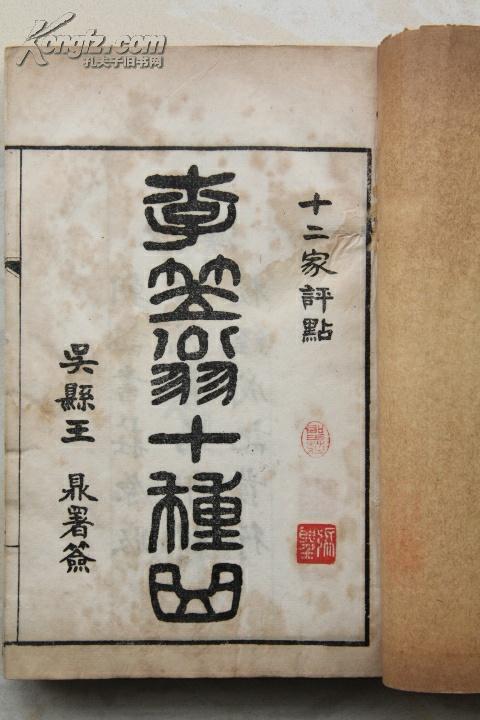 十二家評點
李笠翁十種曲
吳縣王鼎署簽
Kongfz.com
孔夫子旧书网